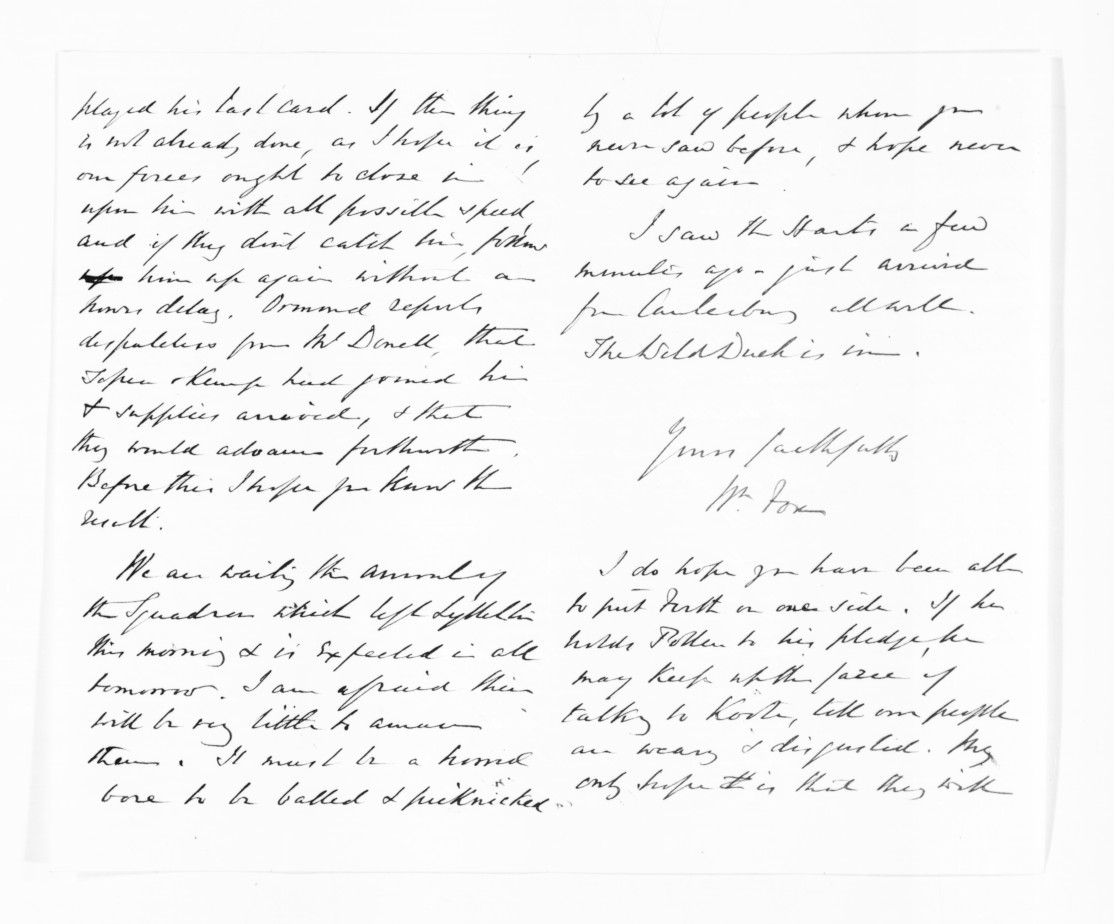 played his last card. If the thing
is not already done, as I hope it is,
our forces ought to close in
upon him with all possible speed,
and if they don't catch him, follow
him up again without an
hours delay. Ormond reports
despatches from McDonell, that
Topia & Kemp had joined him
& supplies arrived, & that
they would advance forthwith.
Before this I hope you know the
result.
We are waiting the arrival of
the Squadron which left Lyttelton
this morning & is expected in all
tomorrow. I am afraid there
will be very little to amuse
them. It must be a horrid
bore to be balled & picknicked
by a lot of people whom you
never saw before, & hope never
to see again.
I saw the Harts a few
minutes ago - just arrived
from Canterbury all well.
The Wild Duck is in.
Yours faithfully
Wm. Fox
I do hope you have been able
to put Forth on one side. If he
holds Pollen to his pledge, he
may keep up the farce of
talking to Kooti, till our people
are weary & disgusted. My
only hope is that they will